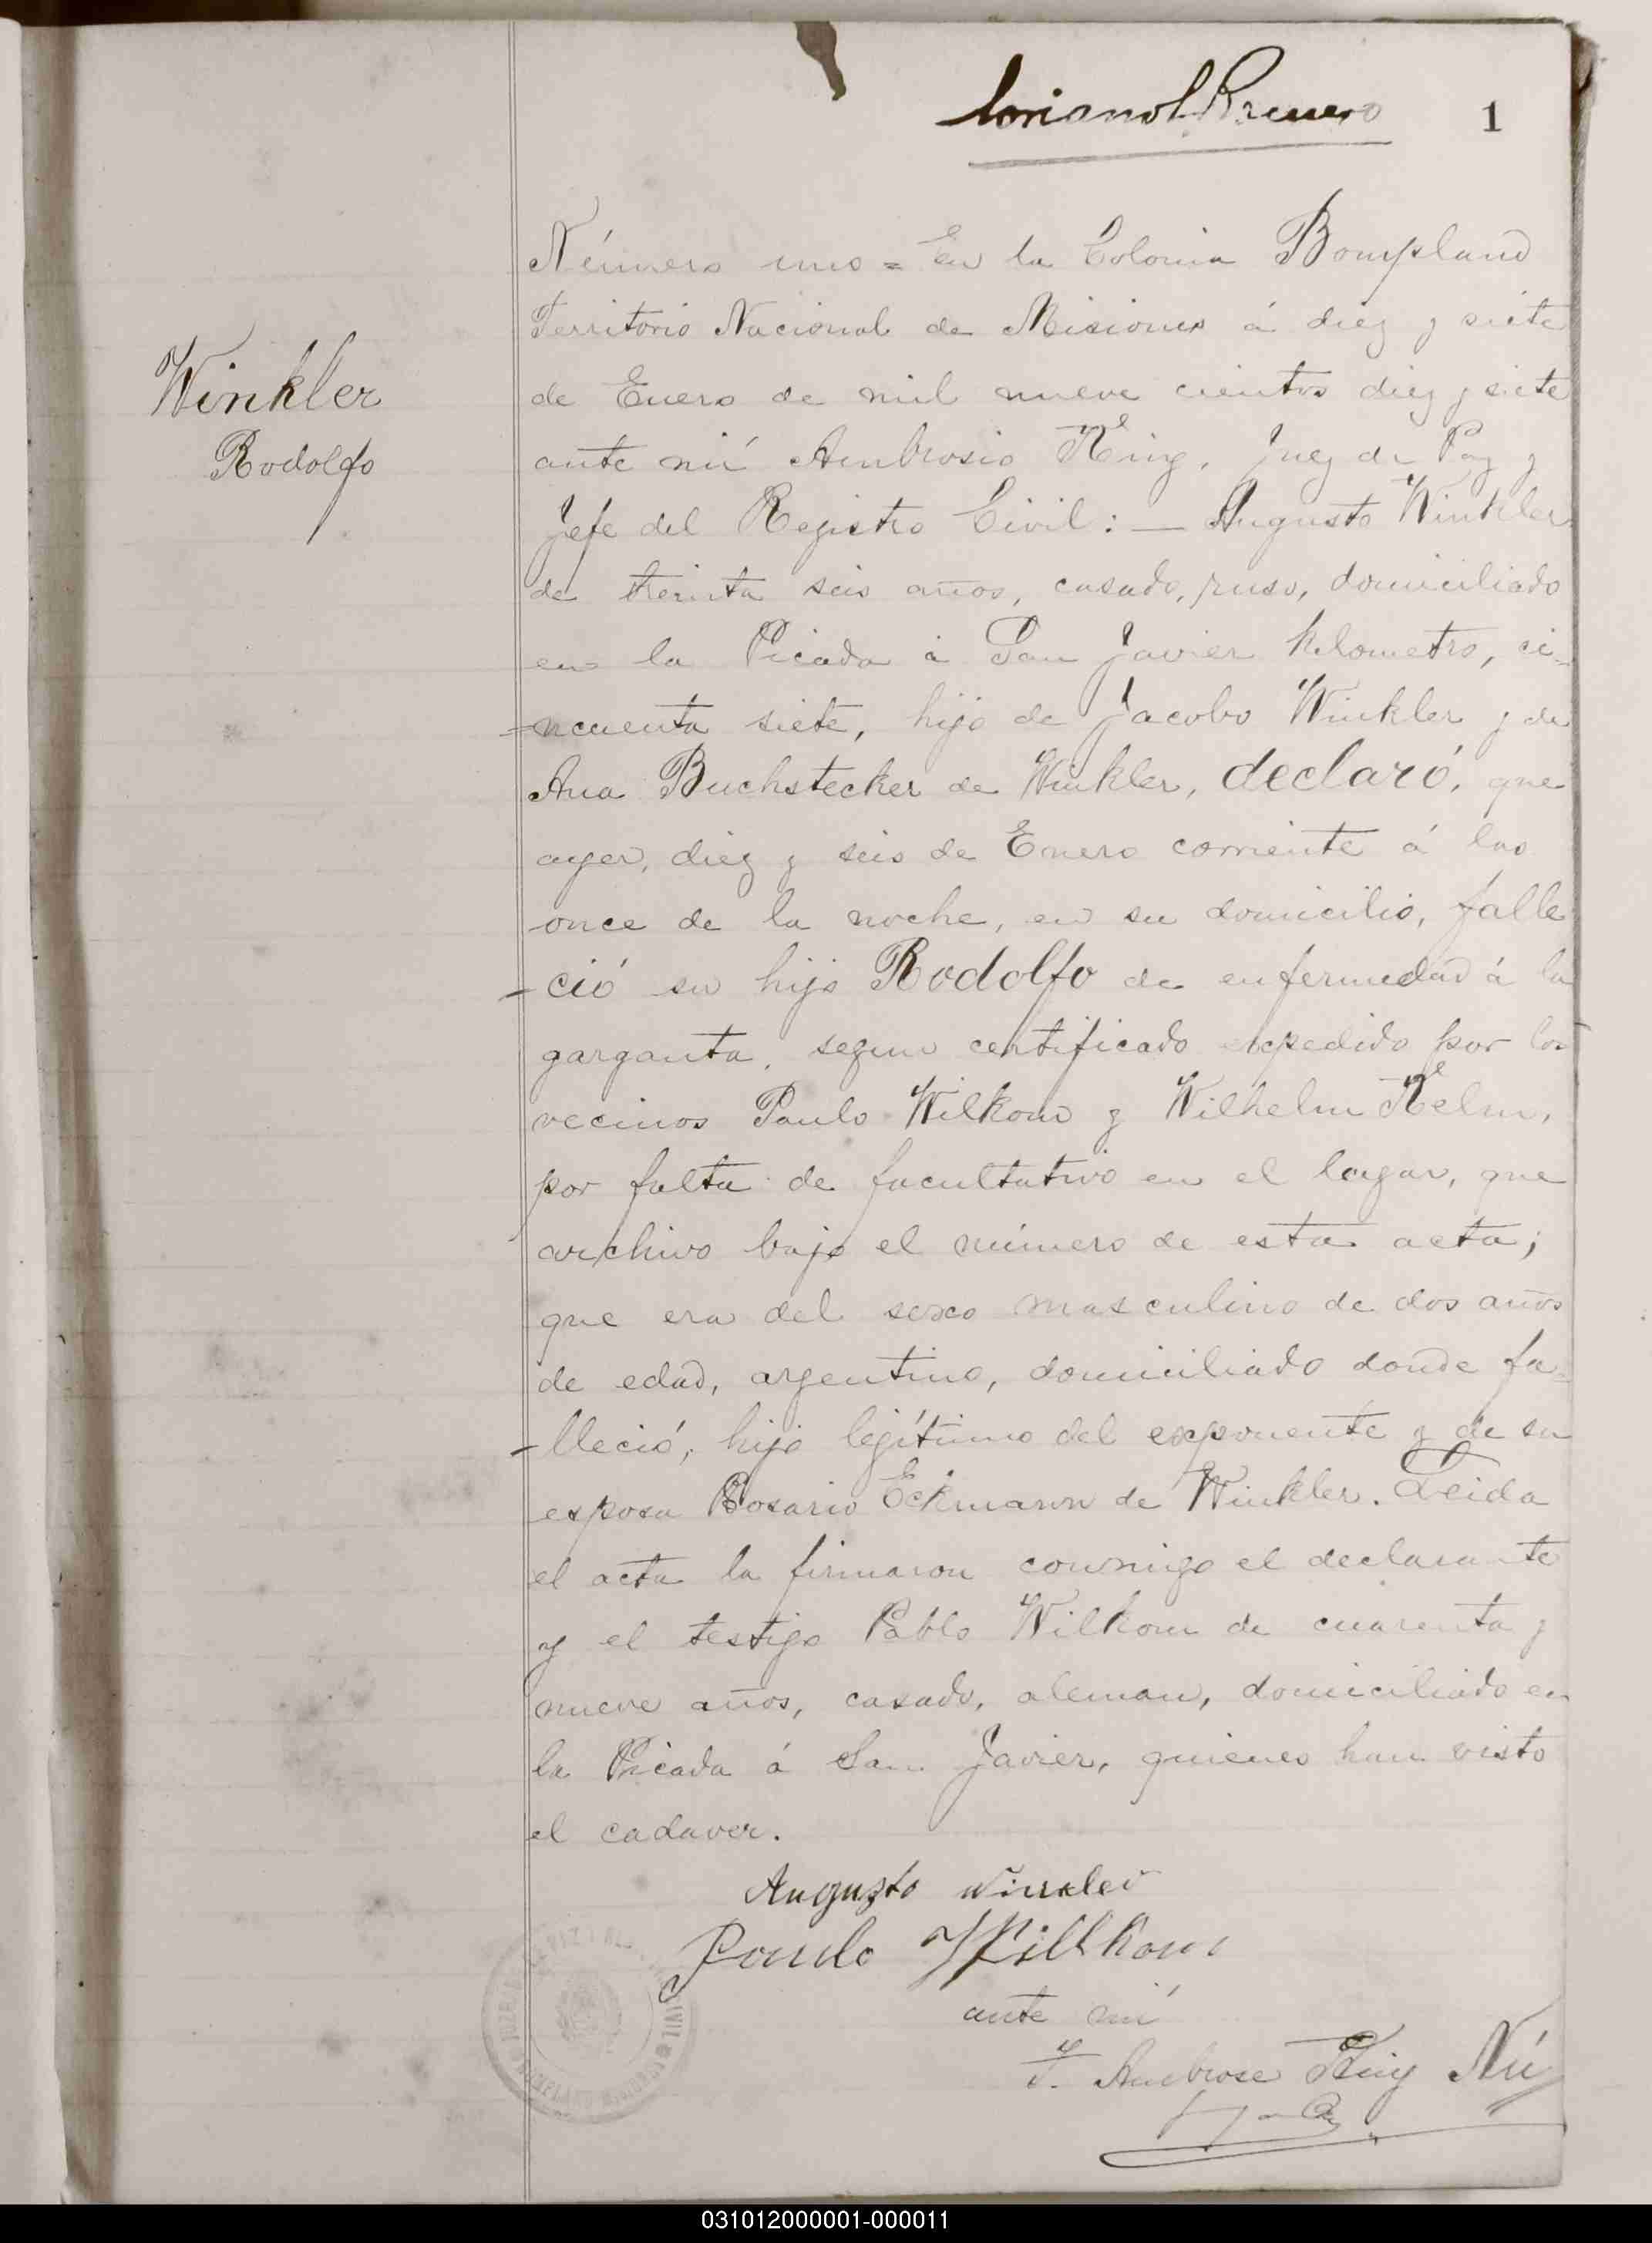 1
Winkler
Rodolfo
Número uno = En la Colonia Bompland
Territorio Nacional de Misiones á diez y siete
de Enero de mil nueve cientos diez y siete
ante mí Ambrosio King, Juez de Paz y
Jefe del Registro Civil: — Augusto Winkler
de treinta seis años, casado, ruso, domiciliado
en la Picada á San Javier kilometro, ci=
=ncuenta siete, hijo de Jacobo Winkler y de
Ana Buchstecker de Winkler, declaró, que
ayer, diez y seis de Enero corriente á las
once de la noche, en su domicilio, falle
-ció su hijo Rodolfo de enfermedad á la
garganta, segun certificado expedido por los
vecinos Paulo Wilkom y Wilhelm Kelm,
por falta de facultativo en el lugar, que
archivo bajo el número de esta acta;
que era del sexo masculino de dos años
de edad, argentino, domiciliado donde fa=
-lleció, hijo legítimo del exponente y de su
esposa Rosario Eckmann de Winkler. Leida
el acta la firmaron conmigo el declarante
y el testigo Pablo Wilkom de cuarenta y
nueve años, casado, aleman, domiciliado en
la Picada á San Javier, quienes han visto
el cadaver.
Augusto Winkler
Paulo Willkom
ante mí
Ambrose King
031012000001-000011